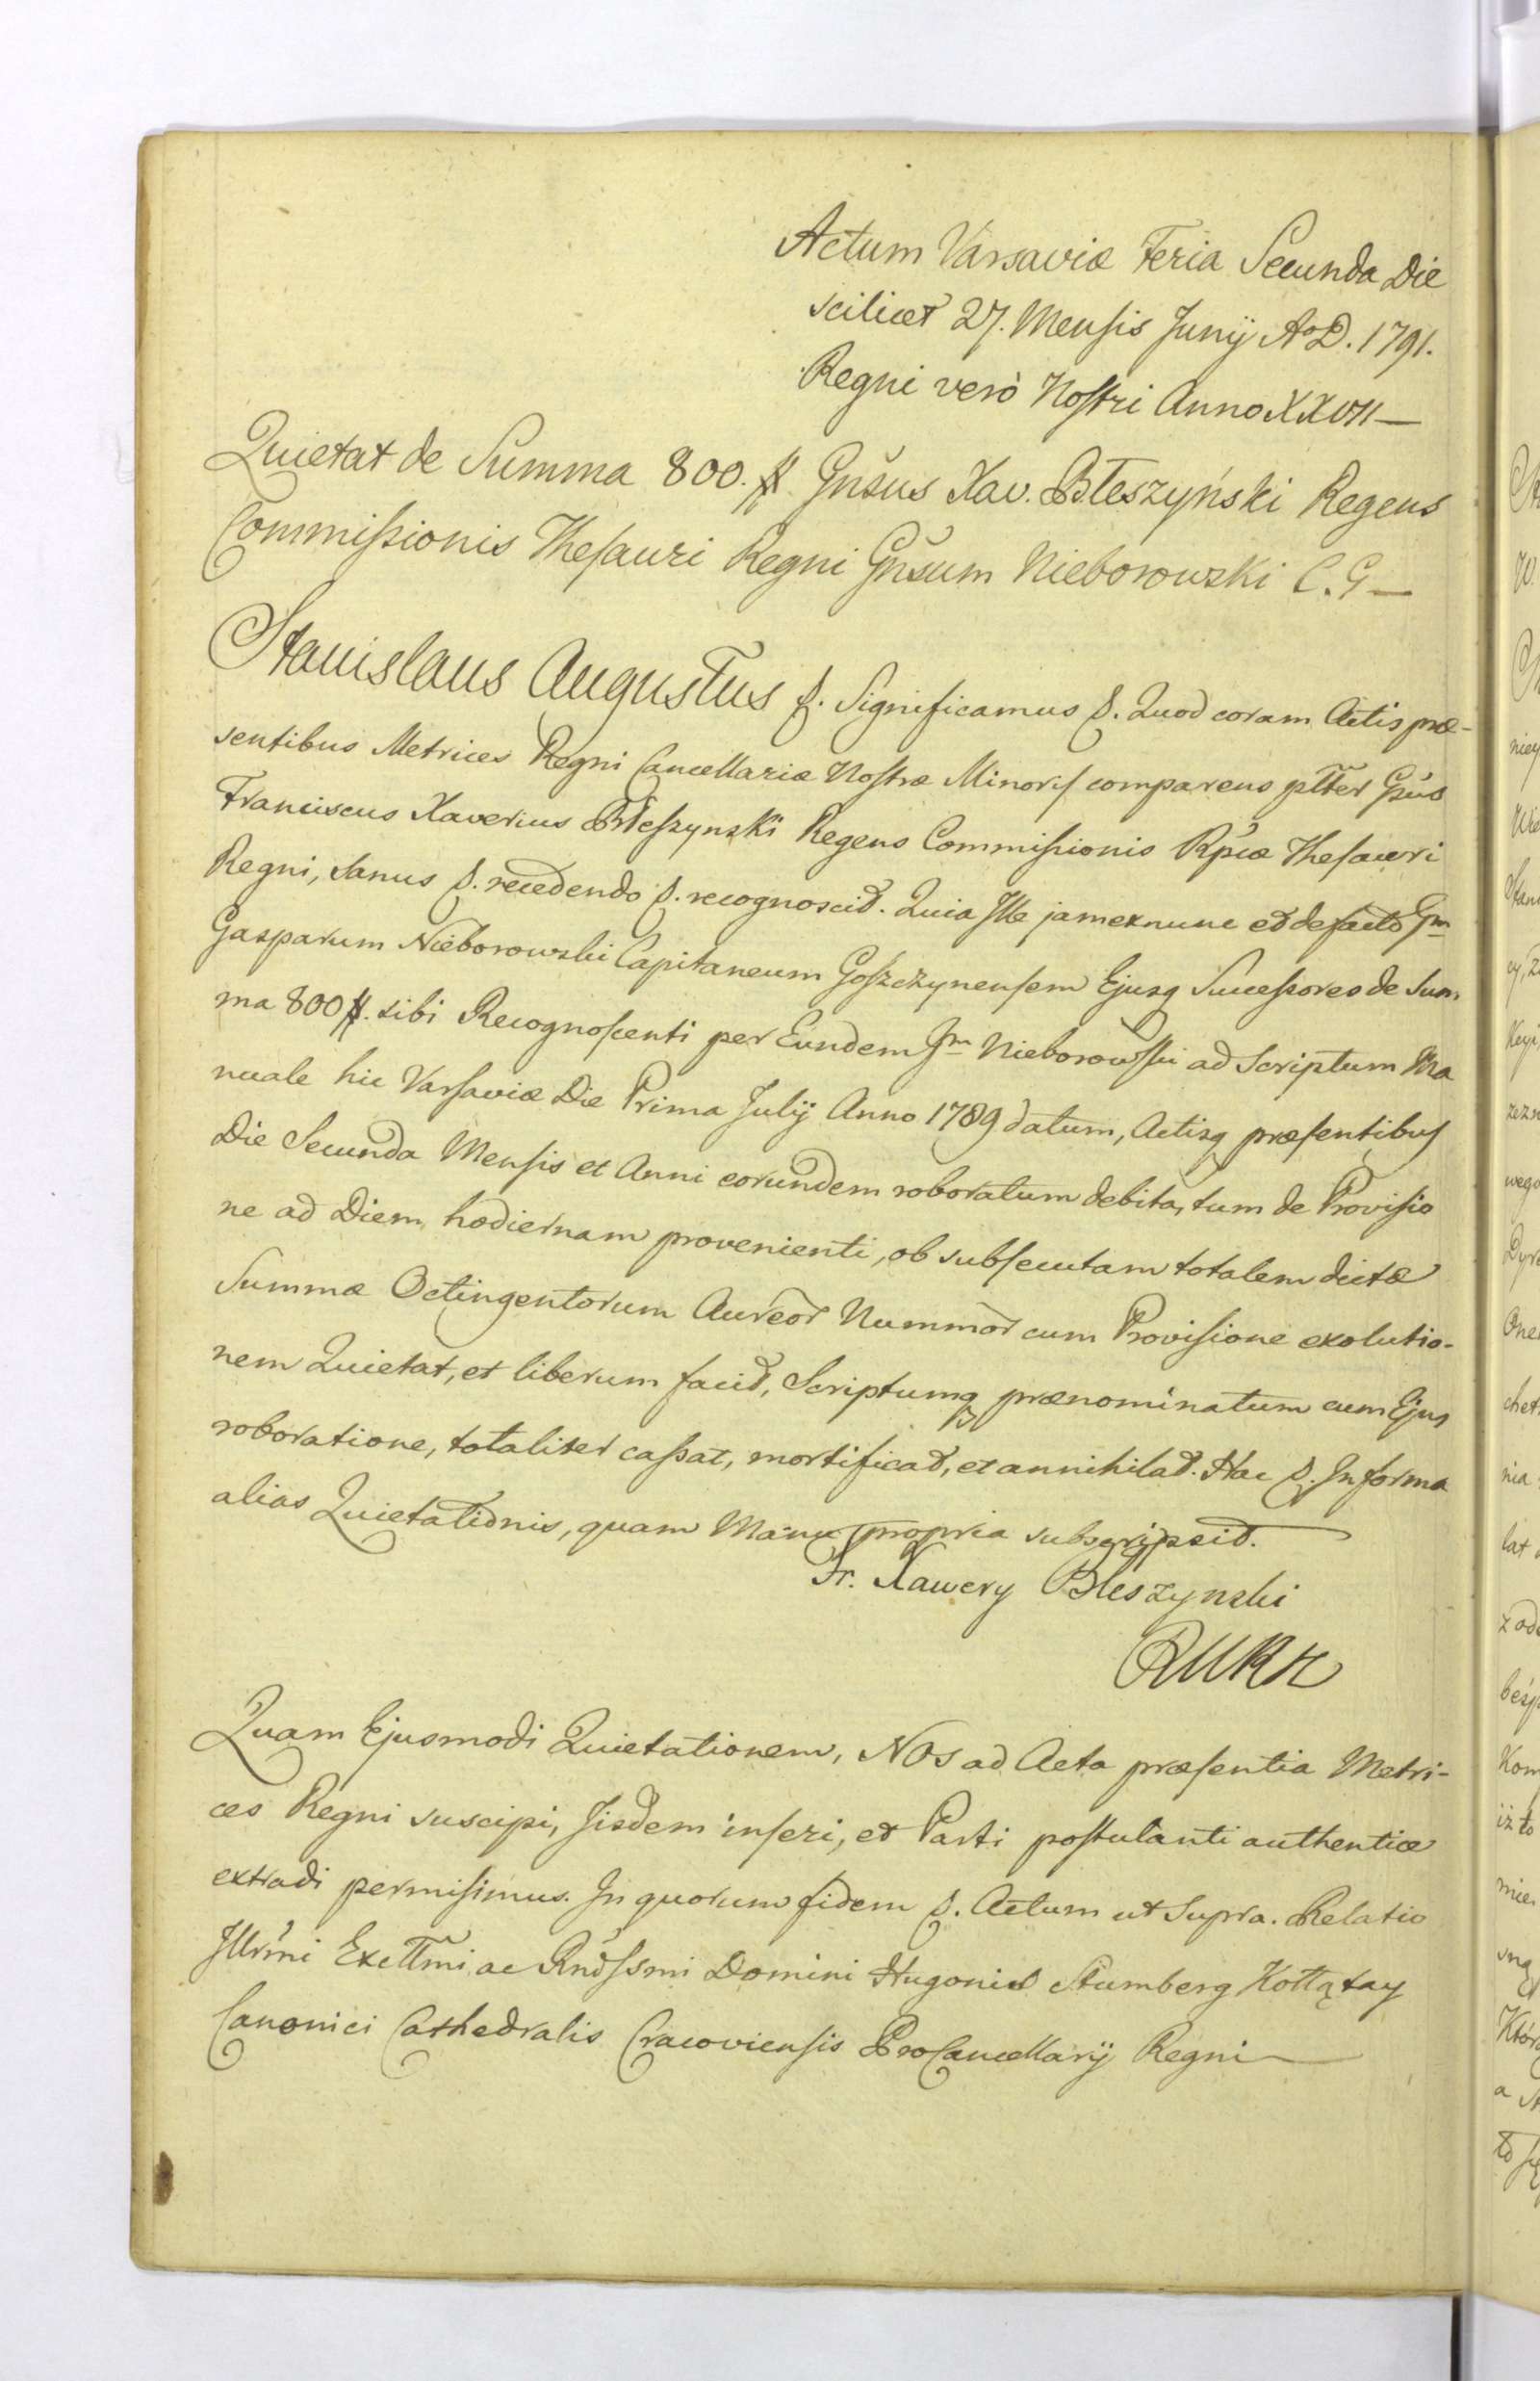 Actum Varsaviæ Feria Secunda Die
scilicet 27. Mensis Junÿ A°D. 1791.
Regni verò Nostri Anno XXVII —
Quietat de Summa 800. # Gnšus Xav. Błeszyński Regens
Commissionis Thesauri Regni Gnšum Nieborowski C. G —
Stanislaus Augustus &. Significamus &. Quod coram Actis præ-
sentibus Metrices Regni Cancellariæ Nostræ Minoris comparens pltter Gšus
Franciscus Xaverius Błeszynski Regens Commissionis Rpcæ Thesauri
Regni, sanus &. recedendo &. recognoscit. Quia Ille jam ex nunc et de facto Gm
Gasparum Nieborowski Capitaneum Goszczynensem Ejusq Successores de Sum
ma 800 #. sibi Recognoscenti per Eundem Gm Nieborowski ad Scriptum Ma
nuale hic Varsaviæ Die Prima Julÿ Anno 1789 datum, Actisq præsentibus
Die Secunda Mensis et Anni eorundem roboratum debita, tum de Provisio
ne ad Diem hodiernam provenienti, ob subsecutam totalem dictæ
Summæ Octingentorum Aureor Nummor cum Provisione exolutio-
nem Quietat, et liberum facit, Scriptumq prænominatum cum Ejus
roboratione, totaliter cassat, mortificat, et annihilat. Hac &. In forma
alias Quietationis, quam Manu propria subscripsit.
Fr. Xawery Błeszynski
RUKK
Quam Ejusmodi Quietationem, NOS ad Acta præsentia Metri-
ces Regni suscipi, Iisdem inseri, et Parti postulanti authenticæ
extradi permisimus. In quorum fidem &. Actum ut Supra. Relatio
Illrmi Excttmi ac Rndssmi Domini Hugonis Stumberg Kołłątay
Canonici Cathedralis Cracoviensis ProCancellarÿ Regni —